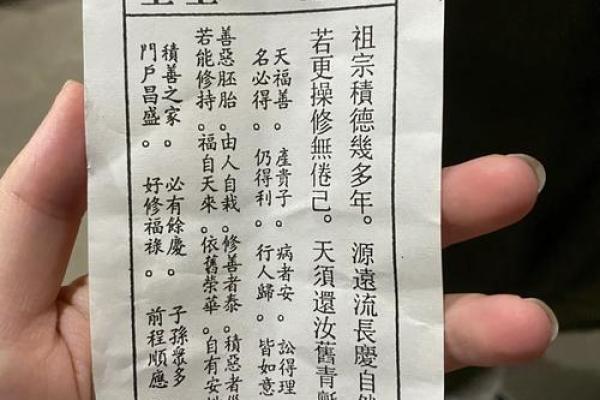 祖宗積德幾多年。源遠流長慶自然
若更操修無倦己。天須還汝舊青
天福善。產貴子。病者安。訟得理
名必得。仍得利。行人歸。皆如意
善惡胚胎。由人自栽。修善者泰。積惡者
若能修持。福自天來。依舊榮華。自有安
積善之家。必有餘慶。子孫眾多
門戶昌盛。好修福祿。前程順應